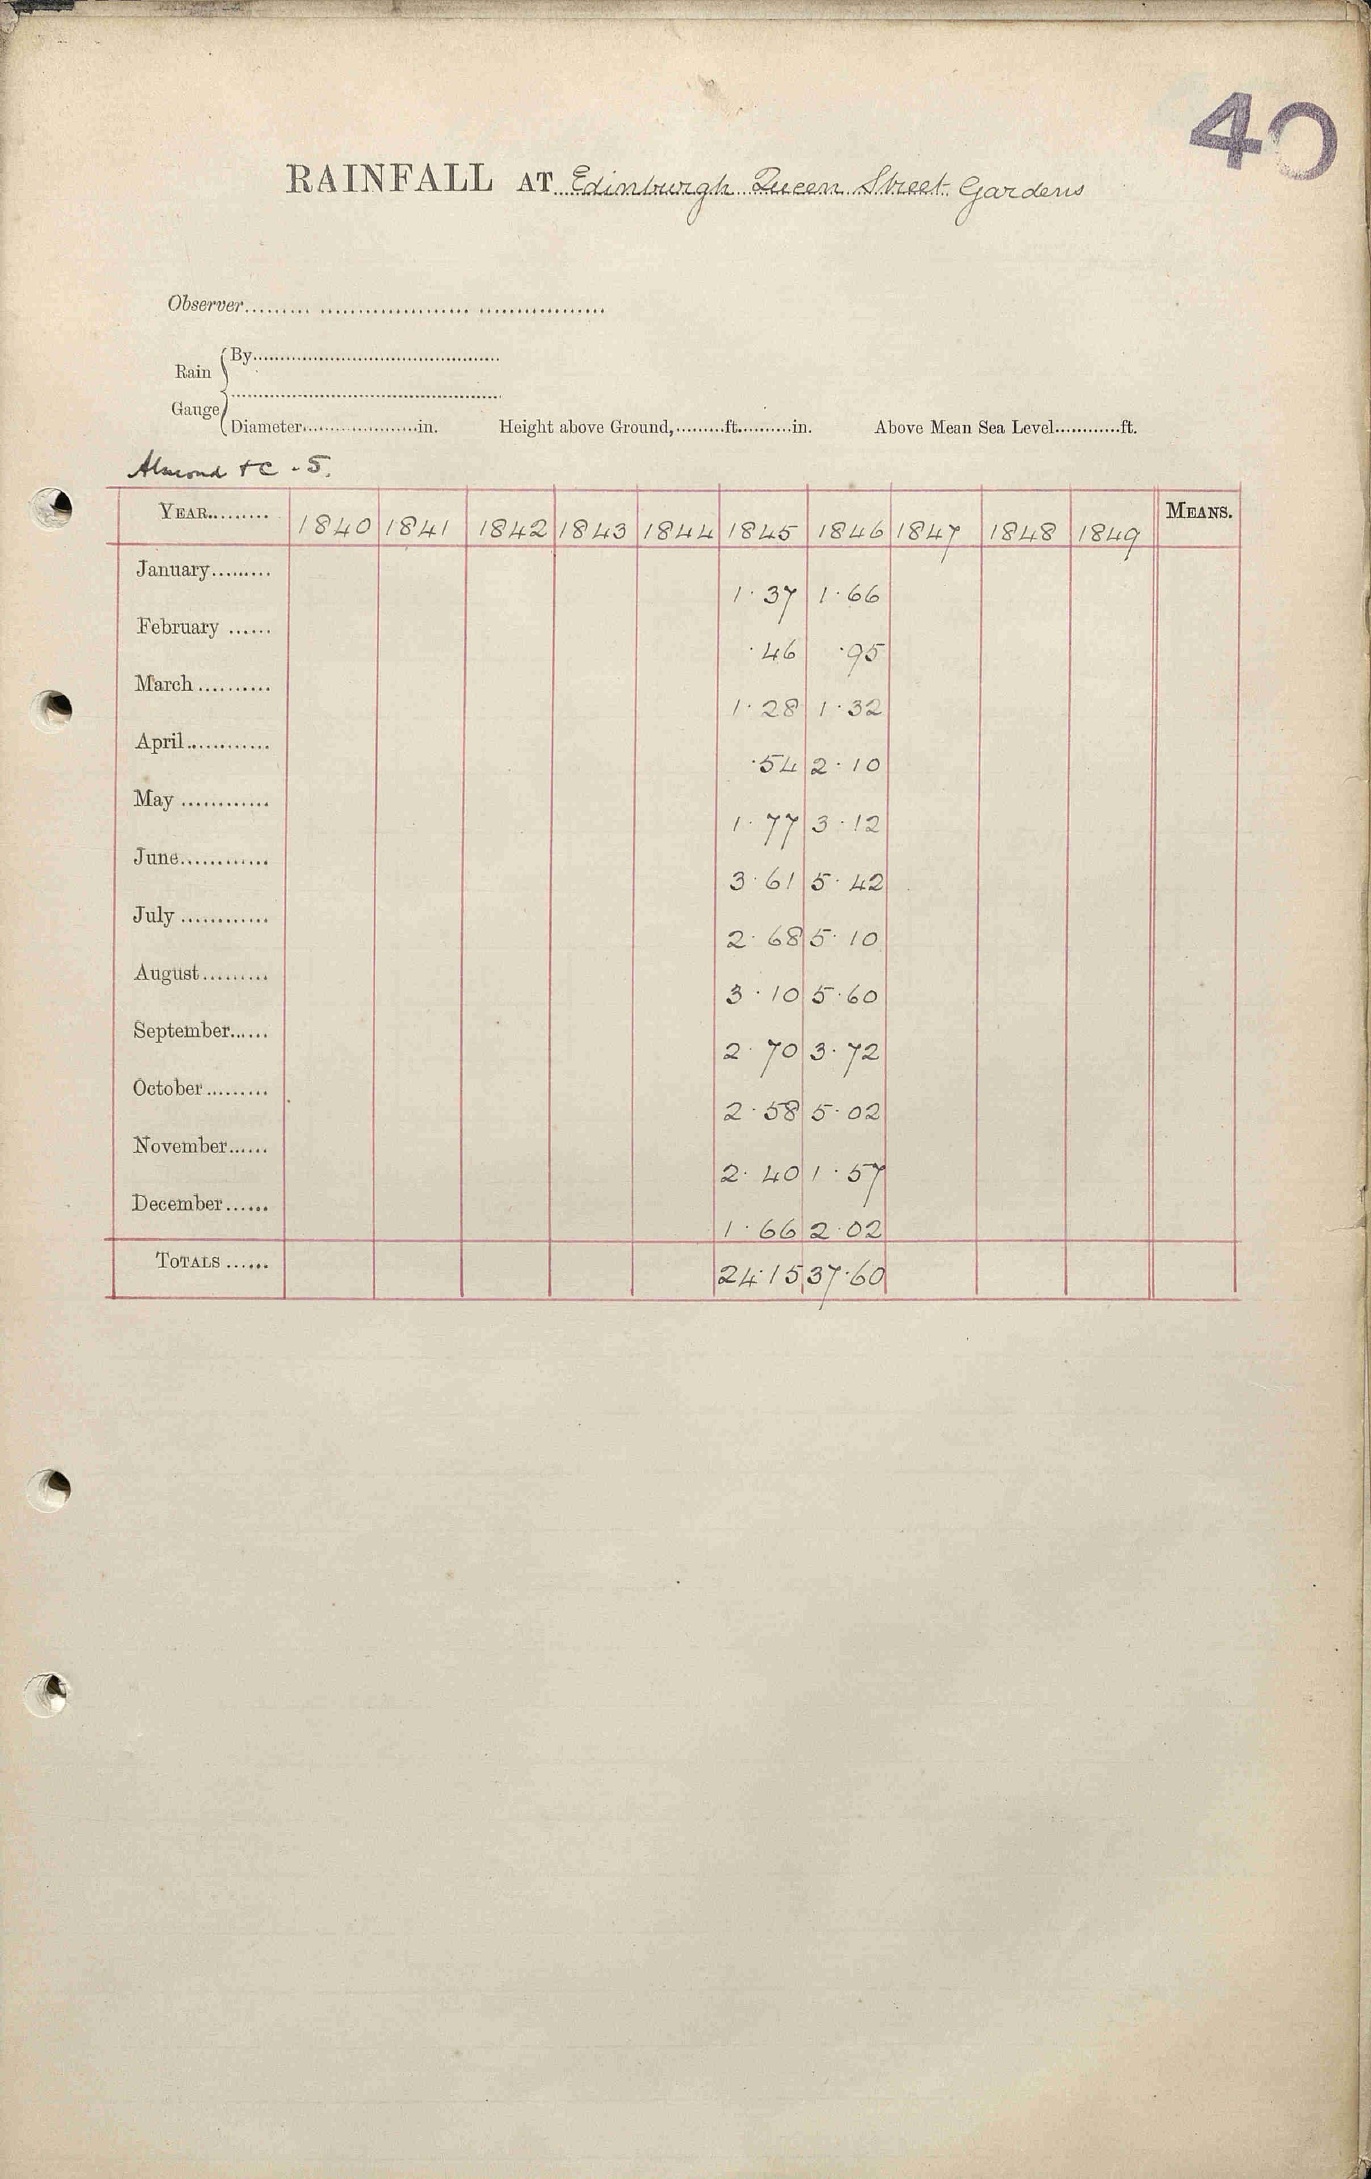 40
RAINFALL AT Edinburgh Queen Street Gardens
Observer
Rain Gauge
By
Diameter in. Height above Ground, ft. in. Above Mean Sea Level ft.
Almond &c - 5.
YEAR 1840 1841 1842 1843 1844 1845 1846 1847 1848 1849 MEANS.
January 1.37 1.66
February .46 .95
March 1.28 1.32
April .54 2.10
May 1.77 3.12
June 3.61 5.42
July 2.68 5.10
August 3.10 5.60
September 2.70 3.72
October 2.58 5.02
November 2.40 1.57
December 1.66 2.02
TOTALS 24.15 37.60